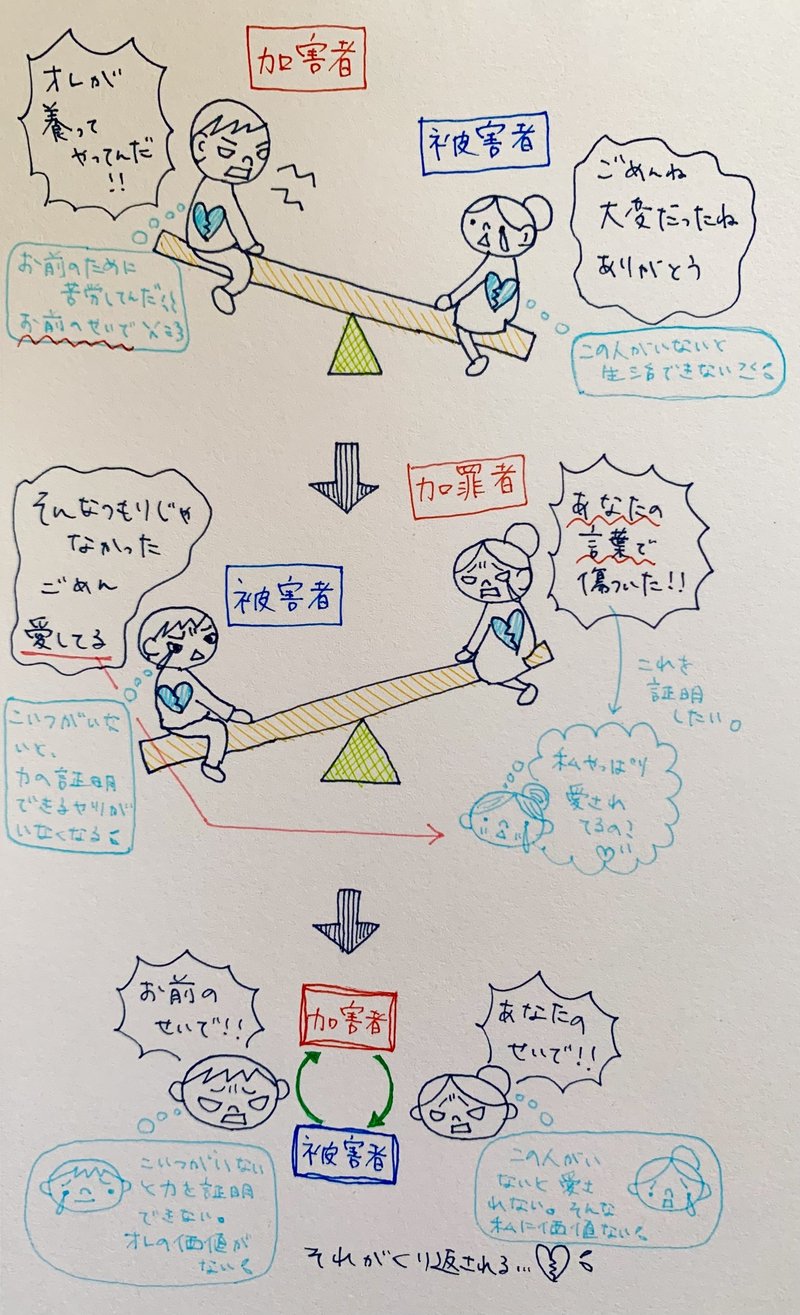 加害者
オレが
養って
やってんだ
!!
被害者
ごめんね
大変だったね
ありがとう
お前のために
苦労してんだ
お前のせいで
この人がいないと
生活できない
そんなつもりじゃ
なかった
ごめん
愛してる
被害者
加罪者
あなたの
言葉で
傷ついた!!
これを
証明
したい。
こいつがいな
いと、
力の証明
できるヤツが
いなくなる
私やっぱり
愛され
てるの?
お前の
せいで!!
加害者
あなたの
せいで!!
被害者
こいつがいない
と力を証明
できない。
オレの価値が
ない
この人がい
ないと愛さ
れない。そんな
私に価値ない
それがくり返される...